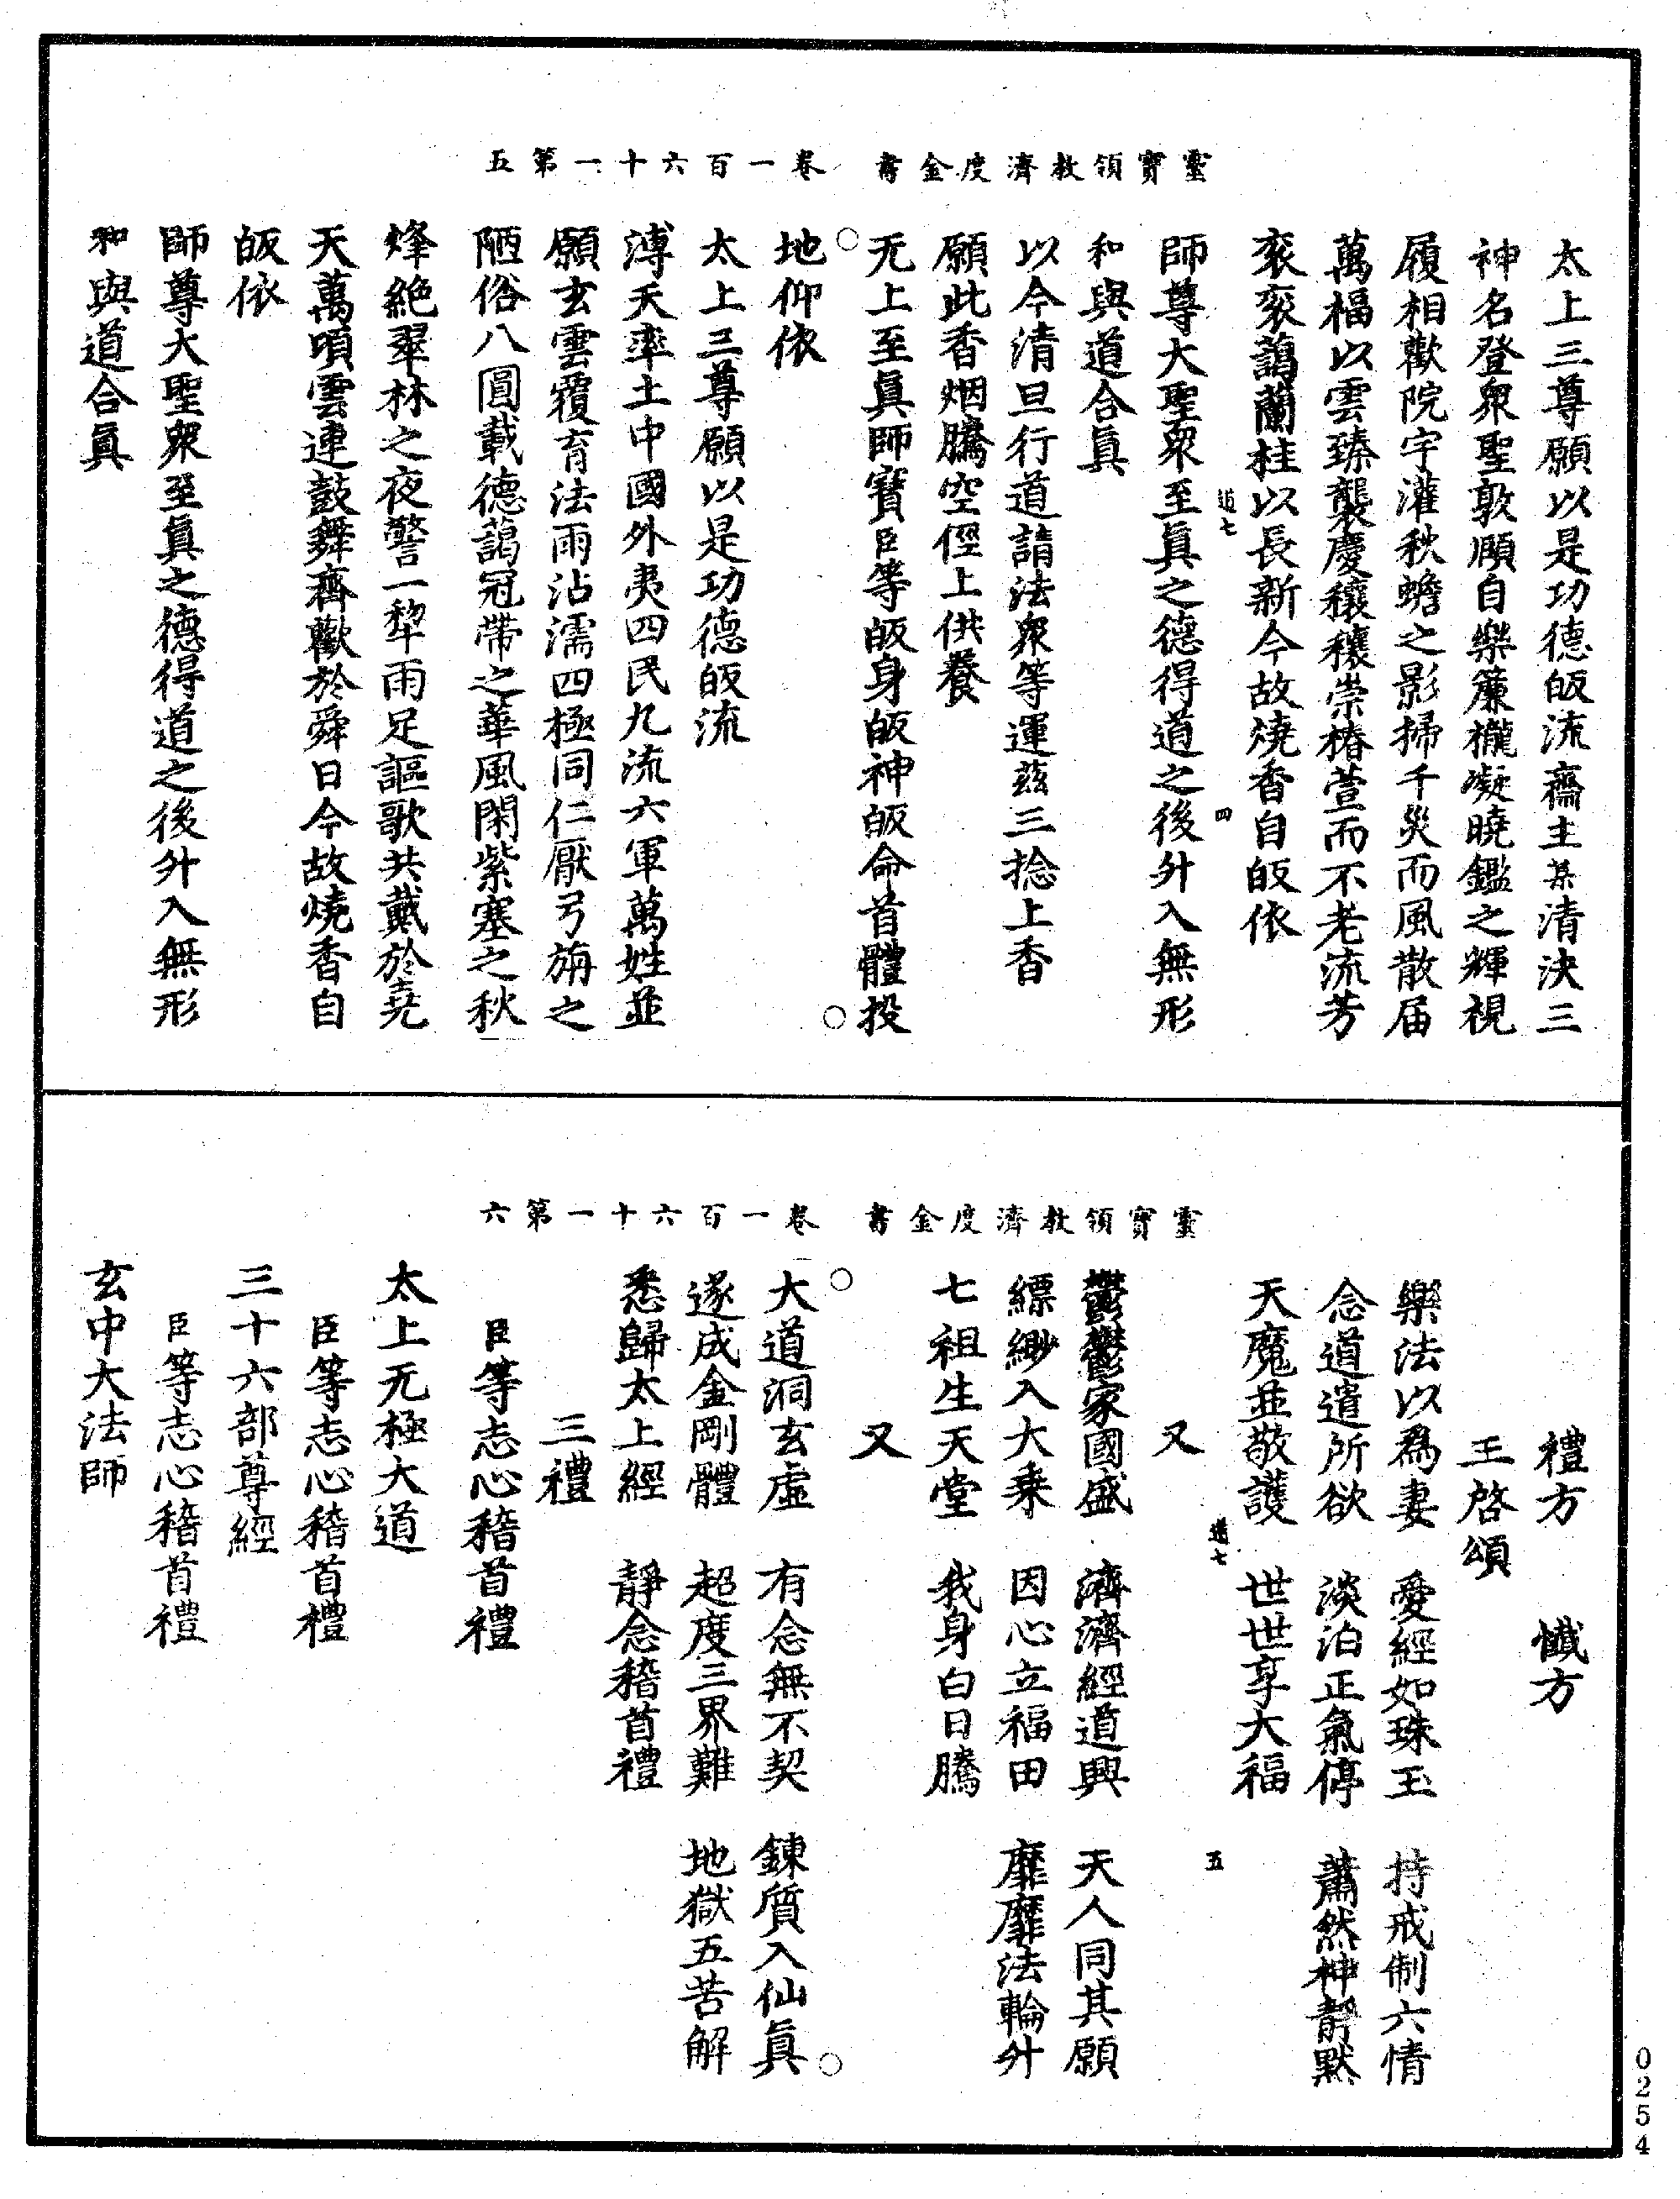 靈寶領教濟度金書　卷一百六十一第五
太上三尊願以是功德皈流齋主某清決三
神名登衆聖敦頤自樂簾櫳凝曉鑑之輝視
履相歡院宇灌秋蟾之影掃千災而風散届
萬福以雲臻襲慶穰穰崇椿萱而不老流芳
衮衮藹蘭桂以長新今故燒香自皈依
道七　四
師尊大聖衆至眞之德得道之後升入無形
和與道合眞
以今清旦行道請法衆等運茲三捻上香
願此香烟騰空徑上供養
无上至眞師寶臣等皈身皈神皈命首體投
地仰依
太上三尊願以是功德皈流
溥天率土中國外夷四民九流六軍萬姓並
願玄雲覆育法雨沾濡四極同仁厭弓旃之
陋俗八圓載德藹冠帶之華風閑紫塞之秋
烽絶翠林之夜警一犂雨足謳歌共戴於堯
天萬頃雲連鼓舞齊歡於舜日今故燒香自
皈依
師尊大聖衆至眞之德得道之後升入無形
和與道合眞
靈寶領教濟度金書　卷一百六十一第六
禮方　懺方
王啓頌
樂法以爲妻　愛經如珠玉　持戒制六情
念道遣所欲　淡泊正氣停　蕭然神靜默
天魔並敬護　世世享大福
道七　五
又
鬱鬱家國盛　濟濟經道興　天人同其願
縹緲入大乘　因心立福田　靡靡法輪升
七祖生天堂　我身白日騰
又
大道洞玄虛　有念無不契　鍊質入仙眞
遂成金剛體　超度三界難　地獄五苦解
悉歸太上經　靜念稽首禮
三禮
臣等志心稽首禮
太上无極大道
臣等志心稽首禮
三十六部尊經
臣等志心稽首禮
玄中大法師
0254